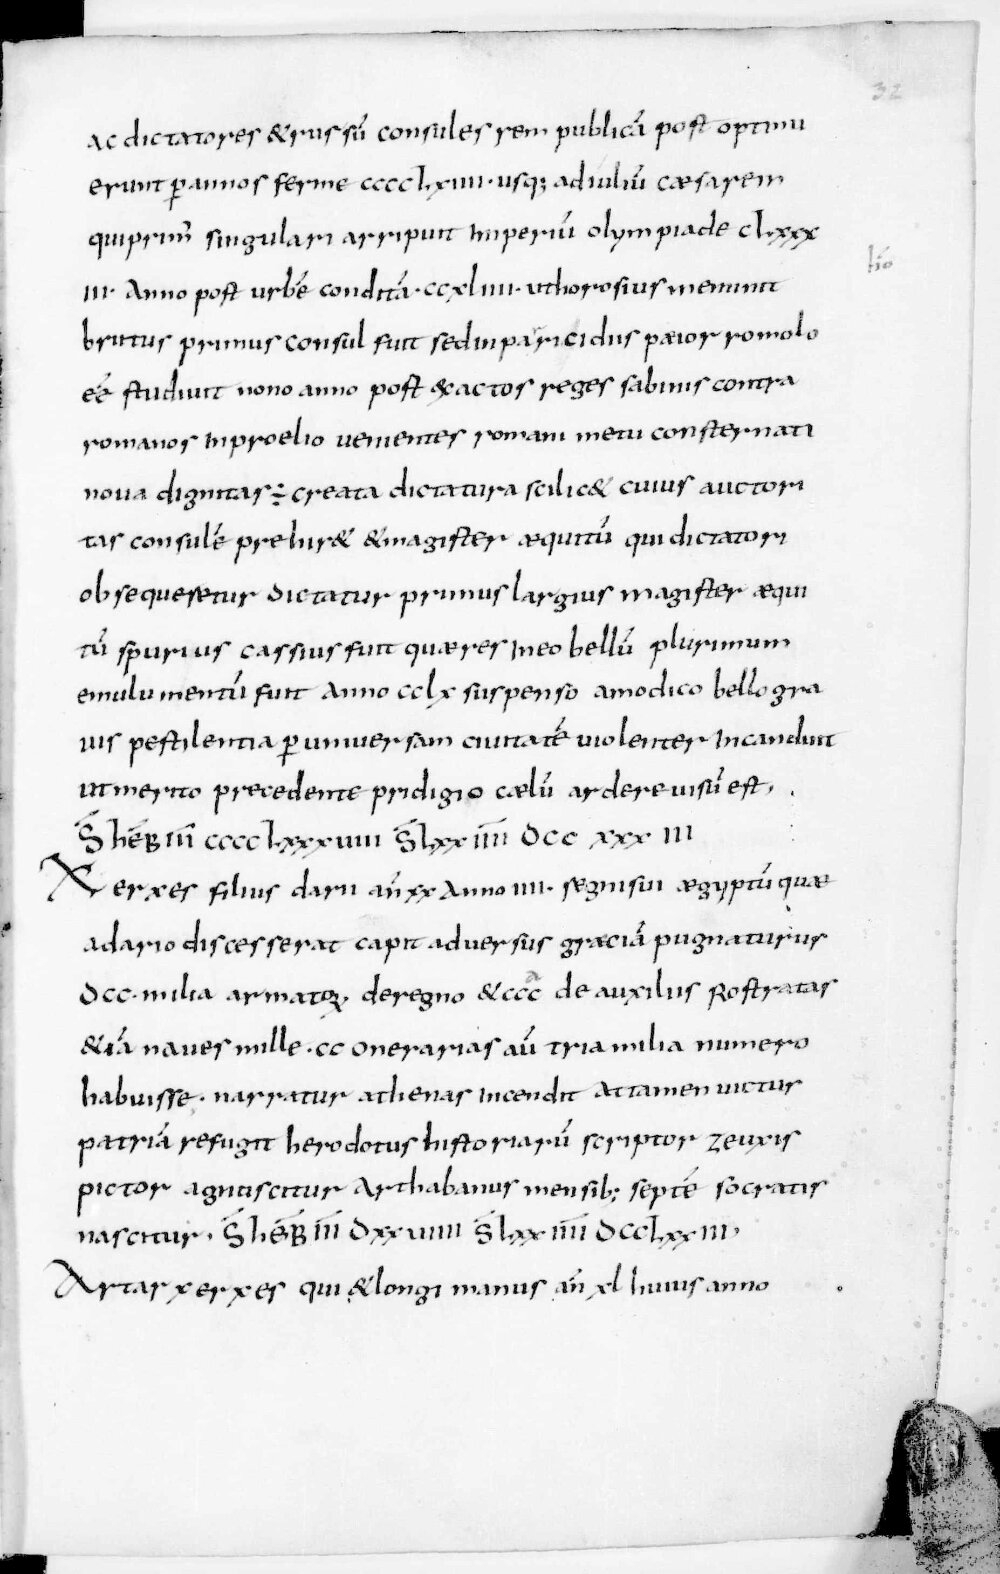 32
ac dictatores & rus sū consules rem publicā post optinu
erunt p̱ annos ferme ccccLxiiii · usq; ad iuliū cæsarem
qui prim̄ singulari arripuit Imperiū olympiade cLxxx
III · Anno post urbē conditā · ccxLIIII · ut horosius meminit
brutus primus consul fuit sed in parricidiis pæior romolo
eē studuit nono anno post exactos reges sabinis contra
romanos In proelio venientes romani metu consternati
nova dignitas ÷ creata dictatura scilic& cuius auctori
tas consulē prehir& & magister æquitū qui dictatori
obsequeretur Dictatur primus largius magister æqui
tū spurius cassius fuit quæ res In eo bellū plurimum
emulumentū fuit Anno ccLx suspenso a modico bello gra
vis pestilentia p̱ universam civitatē violenter Incanduit
ut merito precedente pridigio cælū ardere visū est ,
S̄ hēƀ IIĪ ccccLxxxviiii S̄ Lxx IIĪI Dcc xxx III
Xerxes filius darii an̄ xx Anno IIII · regni sui ægyptū quæ
a dario discesserat capit adversus græciā pugnaturus
Dcc · milia armatoꝝ , de regno & ccc a de auxiliis Rostratas
& iā naves mille · cc onerarias aū tria milia numero
habuisse · narratur athenas Incendit Attamen victus
patriā refugit herodotus historiarū scriptor zeuxis
pictor agnitiscitur Arthabanus mensib; septē socratis
nascitur , S̄ hēƀ IIĪ Dxxviiii S̄ Lxx IIĪI DccLxx III ,
Artarxerxes qui & longi manus an̄ xL huius anno